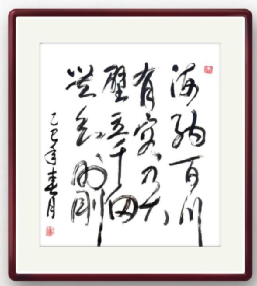 海納百川
有容乃大
壁立千仞
無欲則剛
乙巳年春月